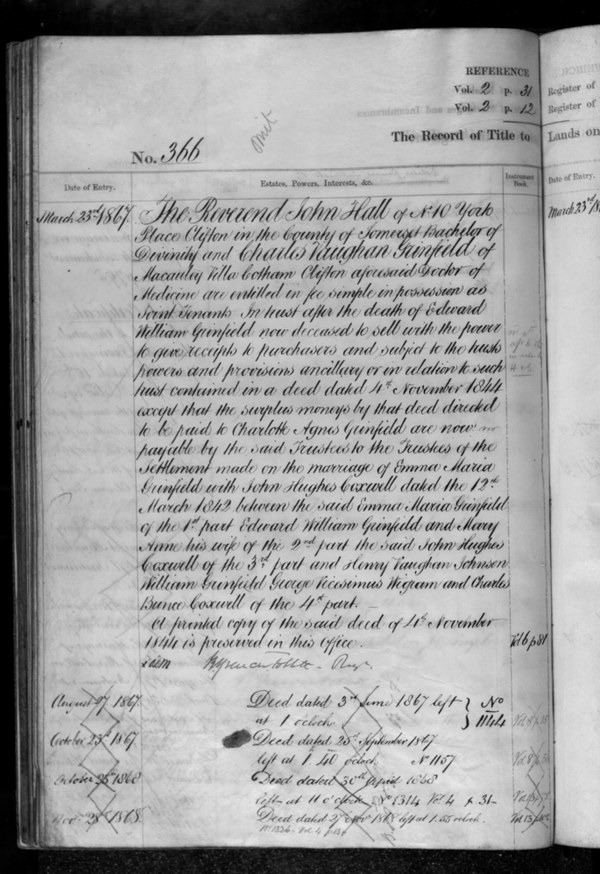 REFERENCE
Vol. 2 p. 31 Register of
Vol. 2 p. 12 Register of
The Record of Title to Lands on
No. 366
Omit
Date of Entry. Estates, Powers, Interests, &c. Instrument Book. Date of Entry.
March 23rd 1867 The Reverend John Hall of No 10 York March 23rd
Place Clifton in the County of Somerset Bachelor of
Divinity and Charles Vaughan Grinfield of
Macauley Villa Cotham Clifton aforesaid Doctor of
Medicine are entitled in fee simple in possession as
Joint Tenants In trust after the death of Edward
William Grinfield now deceased to sell with the power
to give receipts to purchasers and subject to the trusts
powers and provisions ancillary or in relation to such
trust contained in a deed dated 4th November 1844
except that the surplus moneys by that deed directed
to be paid to Charlotte Agnes Grinfield are now
payable by the said Trustees to the Trustees of the
Settlement made on the marriage of Emma Maria
Grinfield with John Hughes Coxwell dated the 12th
March 1842 between the said Emma Maria Grinfield
of the 1st part Edward William Grinfield and Mary
Anne his wife of the 2nd part the said John Hughes
Coxwell of the 3rd part and Henry Vaughan Johnson
William Grinfield George Vicesimus Wigram and Charles
Bunce Coxwell of the 4th part.
A printed copy of the said deed of 4th November
1844 is preserved in this office. Vol 6 p 81
August 27 1867. Deed dated 3rd June 1867 left No
at 1 oclock 1144
October 23rd 1867 Deed dated 25th September 1867
left at 1.40 oclock No 1157
October 25th 1868 Deed dated 30th April 1868
left at 11 o'clock No 1314 Vol 4 p 31
Nov. 28 1868. Deed dated 27 Nov 1868 left at 1.55 oclock.
Vol 4